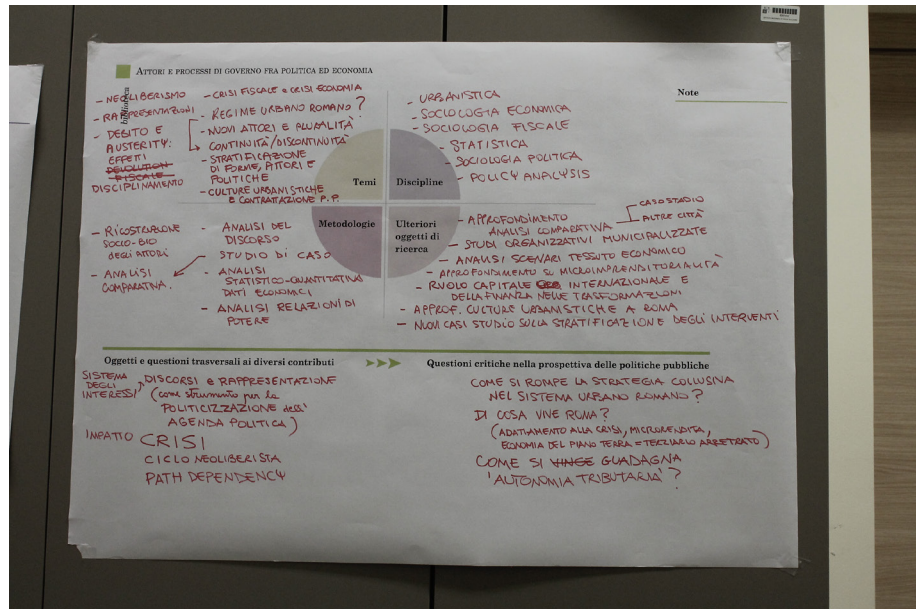 ATTORI E PROCESSI DI GOVERNO FRA POLITICA ED ECONOMIA
biblioteca
- NEOLIBERISMO
- RAPPRESENTAZIONI
- DEBITO E
AUSTERITY:
EFFETTI
DEVOLUTION
FISCALE
DISCIPLINAMENTO
- CRISI FISCALE e CRISI ECONOMIA
- REGIME URBANO ROMANO?
- NUOVI ATTORI E PLURALITÀ
CONTINUITÀ/DISCONTINUITÀ
- STRATIFICAZIONE
DI FORME, ATTORI E
POLITICHE
- CULTURE URBANISTICHE
E CONTRATTAZIONE P.P.
Temi
- URBANISTICA
- SOCIOLOGIA ECONOMICA
- SOCIOLOGIA FISCALE
- STATISTICA
- SOCIOLOGIA POLITICA
- POLICY ANALYSIS
Discipline
Note
- RICOSTRUZIONE
SOCIO-BIO
DEGLI ATTORI
- ANALISI
COMPARATIVA.
- ANALISI DEL
DISCORSO
- STUDIO DI CASO
- ANALISI
STATISTICO-QUANTITATIVA
DATI ECONOMICI
- ANALISI RELAZIONI DI
POTERE
Metodologie
Ulteriori
oggetti di
ricerca
- APPROFONDIMENTO
ANALISI COMPARATIVA
CASO STUDIO
ALTRE CITTÀ
- STUDI ORGANIZZATIVI MUNICIPALIZZATE
- ANALISI SCENARI TESSUTO ECONOMICO
- APPROFONDIMENTO SU MICROIMPRENDITORIALITÀ
- RUOLO CAPITALE INTERNAZIONALE E
DELLA FINANZA NELLE TRASFORMAZIONI
- APPROF. CULTURE URBANISTICHE A ROMA
- NUOVI CASI STUDIO SULLA STRATIFICAZIONE DEGLI INTERVENTI
Oggetti e questioni trasversali ai diversi contributi
SISTEMA
DEGLI
INTERESSI
DISCORSI e RAPPRESENTAZIONE
(come strumento per la
POLITICIZZAZIONE dell'
AGENDA POLITICA)
IMPATTO CRISI
CICLO NEOLIBERISTA
PATH DEPENDENCY
Questioni critiche nella prospettiva delle politiche pubbliche
COME SI ROMPE LA STRATEGIA COLLUSIVA
NEL SISTEMA URBANO ROMANO?
DI COSA VIVE ROMA?
(ADATTAMENTO ALLA CRISI, MICRORENDITA,
ECONOMIA DEL PIANO TERRA = TERZIARIO ARRETRATO)
COME SI VINCE GUADAGNA
'AUTONOMIA TRIBUTARIA'?